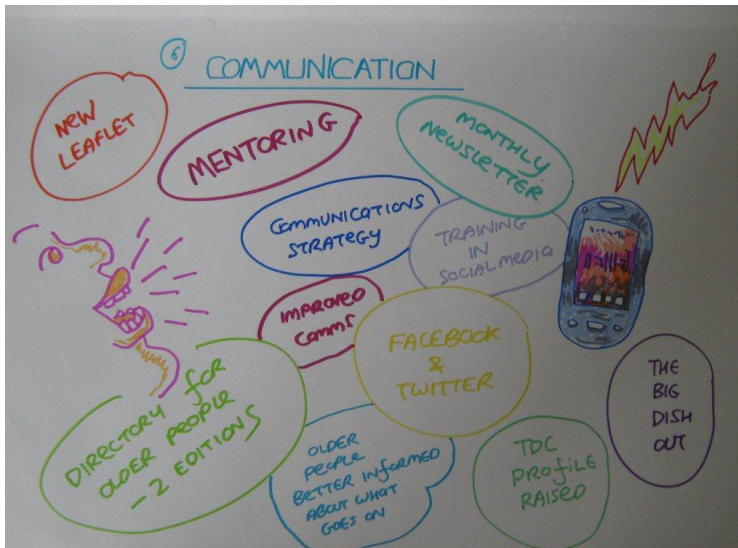 6 COMMUNICATION
NEW
LEAFLET
MENTORING
MONTHLY
NEWSLETTER
COMMUNICATIONS
STRATEGY
TRAINING
IN
SOCIAL MEDIA
IMPROVED
COMMS
FACEBOOK
&
TWITTER
THE
BIG
DISH
OUT
DIRECTORY FOR
OLDER PEOPLE
- 2 EDITIONS
OLDER
PEOPLE
BETTER INFORMED
ABOUT WHAT
GOES ON
TDC
PROFILE
RAISED